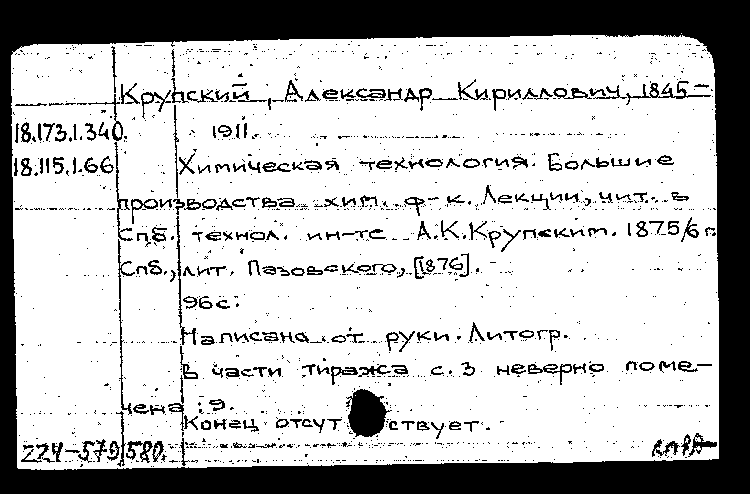 Крупский, Александр Кириллович, 1845-
18.173.1.340. 1911.
18.115.1.66 Химическая технология. Большие
производства хим. ф-к. Лекции, чит. в
Спб. технол. ин-те А.К.Крупским. 1875/6 г.
Спб., лит. Пазовского, [1876].
96с.
Написана от руки. Литогр.
В части тиража с. 3 неверно поме-
чена: 9.
Конец отсутствует.
224-579/580.